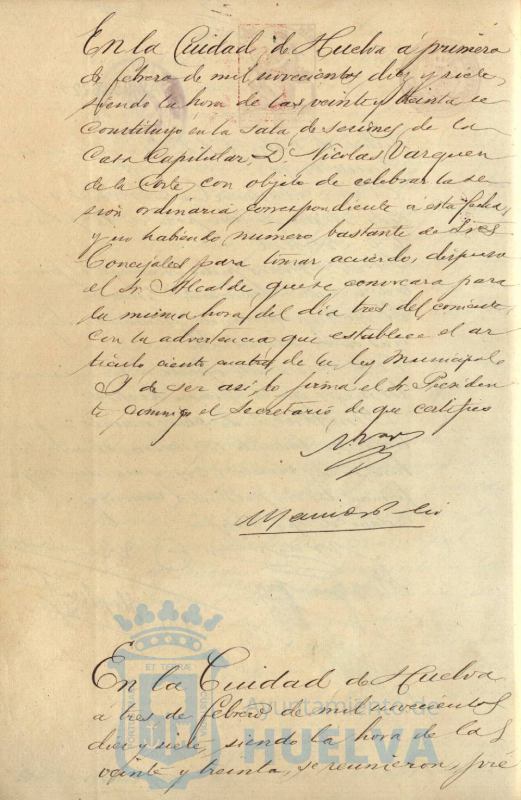 En la Ciudad de Huelva á primero
de febrero de mil novecientos diez y siete,
siendo la hora de las veinte y treinta se
constituyó en la sala de sesiones de la
Casa Capitular, D. Nicolas Vazquez
de la Corte, con objeto de celebrar la se
sión ordinaria correspondiente á esta fecha,
y no habiendo número bastante de Sres
Concejales para tomar acuerdo, dispuso
el Sr. Alcalde que se convocara para
la misma hora del día tres del corriente,
con la advertencia que establece el ar
tículo ciento cuatro de la ley Municipal
Y de ser así lo firma el Sr. Presiden
te conmigo el Secretario de que certifico
En la Ciudad de Huelva
á tres de febrero de mil novecientos
diez y siete, siendo la hora de las
veinte y treinta, se reunieron, pré
ET TERRÆ
Ayuntamiento de
HUELVA